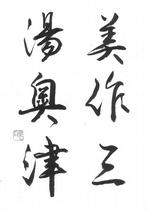 美作三
湯奥津